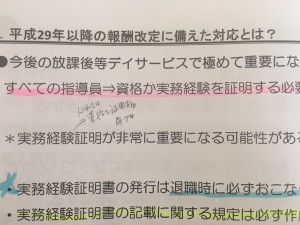 . 平成29年以降の報酬改定に備えた対応とは?
●今後の放課後等デイサービスで極めて重要にな
すべての指導員⇒資格か実務経験を証明する必要
＊実務経験証明が非常に重要になる可能性がある
・実務経験証明書の発行は退職時に必ずおこな
・実務経験証明書の記載に関する規定は必ず作